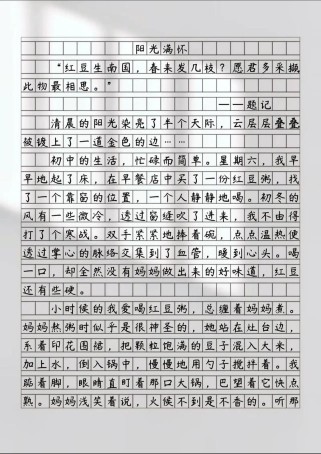 阳光满怀
“红豆生南国，春来发几枝？愿君多采撷
此物最相思。”
——题记
清晨的阳光染亮了半个天际，云层层叠叠
被镀上了一道金色的边……
初中的生活，忙碌而简单。星期六，我早
早地起了床，在早餐店中买了一份红豆粥，找
了一个靠窗的位置，一个人静静地喝。初冬的
风有一些微冷，透过窗缝吹了进来，我不由得
打了个寒战。双手紧紧地捧着碗，点点温热便
透过掌心的脉络交集到了血管，暖到心头。喝
一口，却全然没有妈妈做出来的好味道，红豆
还有些硬。
小时侯的我爱喝红豆粥，总缠着妈妈煮。
妈妈熬粥时似乎是很神圣的，她站在灶台边，
系着印花围裙，把颗粒饱满的豆子混入大米，
加上水，倒入锅中，慢慢地用勺子搅拌着。我
踮着脚，眼睛直盯着那口大锅，巴望着它快点
熟。妈妈浅笑着说，火候不到是不香的。听那